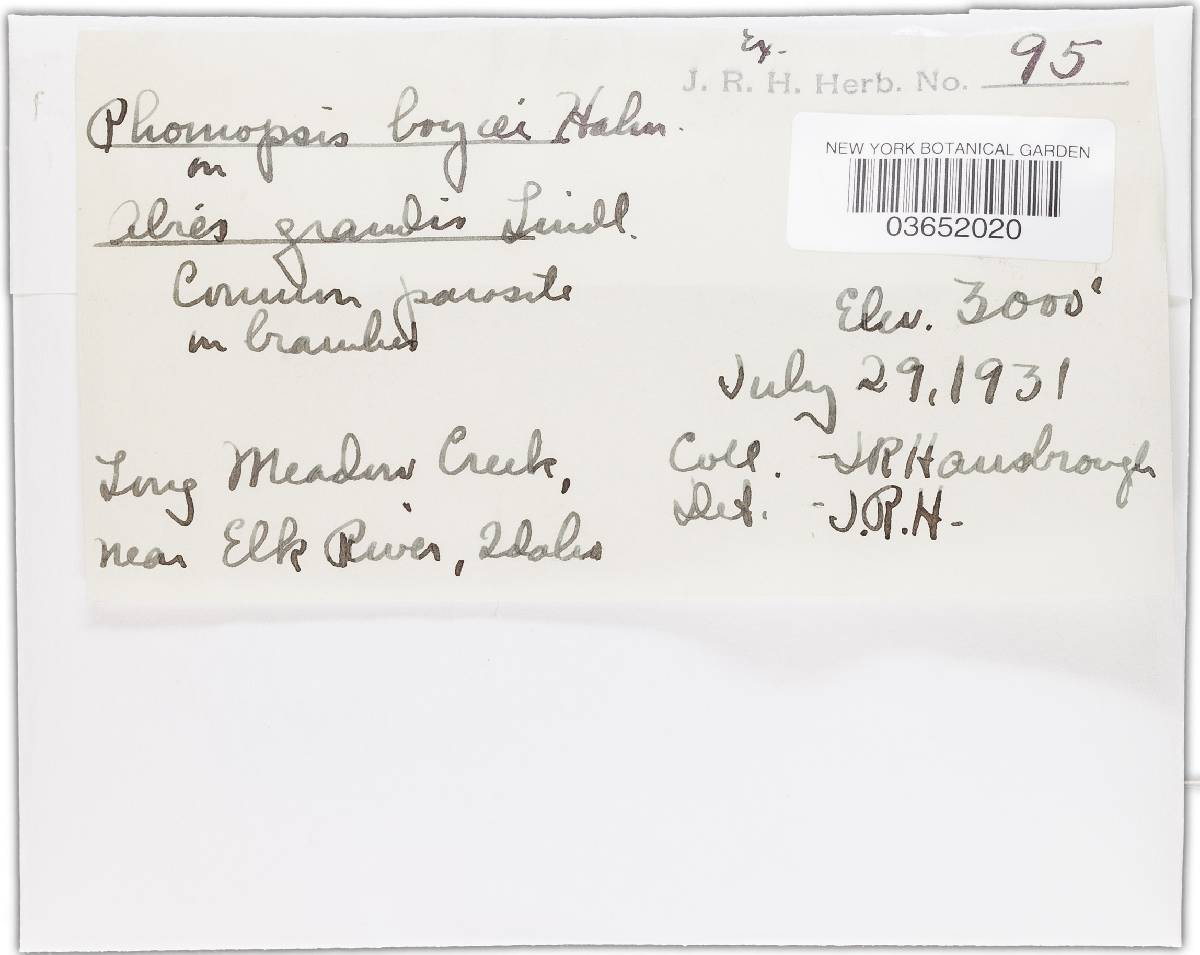 Ex.
J. R. H. Herb. No. 95
Phomopsis boycei Hahn.
on
Abies grandis Lindl.
Common parasite
on branches
NEW YORK BOTANICAL GARDEN
03652020
Elev. 3000'
July 29, 1931
Long Meadow Creek,
near Elk River, Idaho
Coll. - JR Hansbrough
Det. - J.R.H-